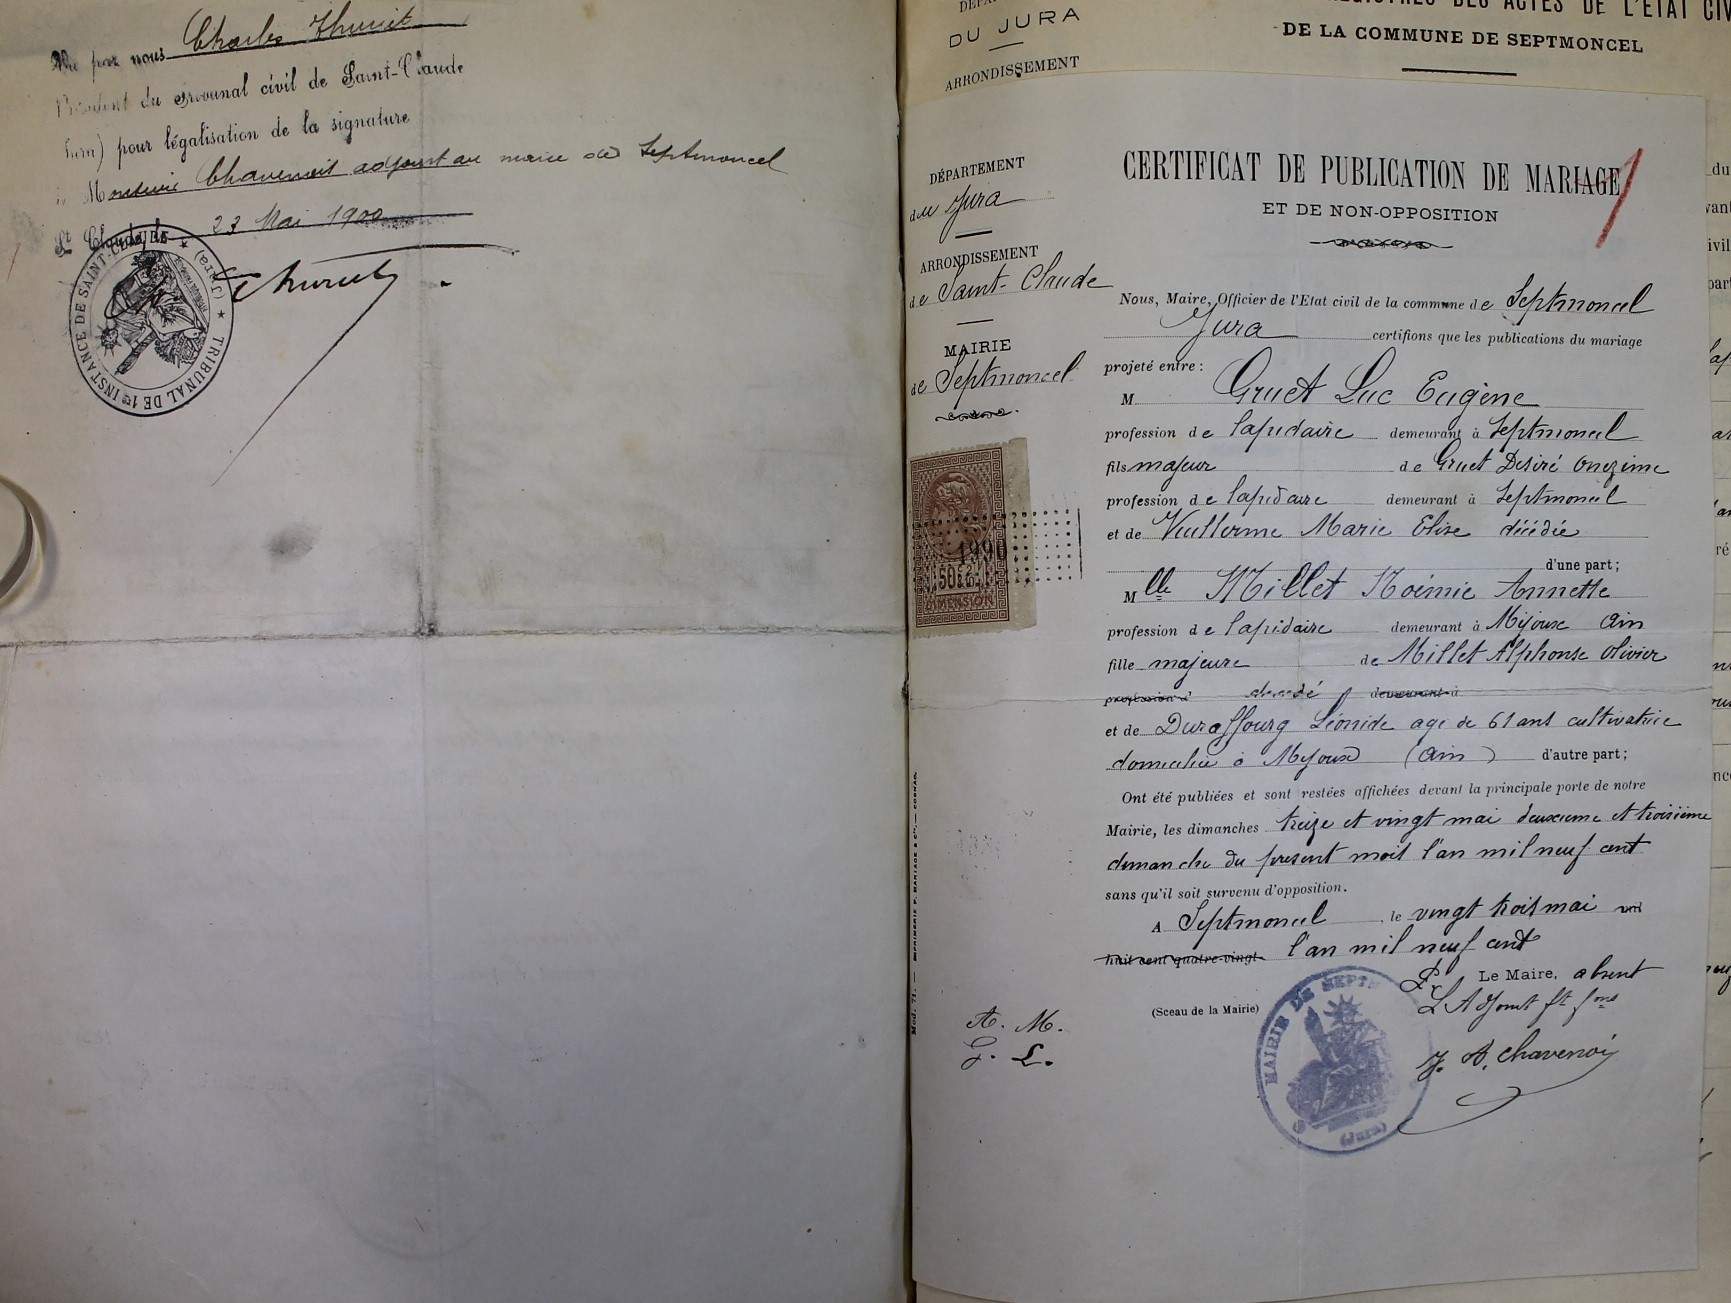 Vu par nous Charles Thurict
Président du Tribunal civil de Saint-Claude
(Jura) pour légalisation de la signature
Monsieur Chavernoit adjoint au maire de Septmoncel
St Claude, le 23 Mai 1900
TRIBUNAL DE 1re INSTANCE DE SAINT-CLAUDE (Jura)
DU JURA
ARRONDISSEMENT
REGISTRES DES ACTES DE L'ETAT CIV
DE LA COMMUNE DE SEPTMONCEL
DÉPARTEMENT
du Jura
ARRONDISSEMENT
de Saint-Claude
MAIRIE
de Septmoncel
50 c.
DIMENSION
CERTIFICAT DE PUBLICATION DE MARIAGE
ET DE NON-OPPOSITION
Nous, Maire, Officier de l'Etat civil de la commune de Septmoncel
Jura certifions que les publications du mariage
projeté entre :
M Gruet Luc Eugène
profession de lapidaire demeurant à Septmoncel
fils majeur de Gruet Désiré Onézime
profession de lapidaire demeurant à Septmoncel
et de Vuillerme Marie Elise décédée
d'une part ;
Mlle Millet Noémie Annette
profession de lapidaire demeurant à Mijoux Ain
fille majeure de Millet Alphonse Olivier
profession d' décédé demeurant à
et de Duraffourg Léonide age de 61 ans cultivatrice
domiciliée à Mijoux (Ain) d'autre part ;
Ont été publiées et sont restées affichées devant la principale porte de notre
Mairie, les dimanches treize et vingt mai deuxieme et troisième
dimanche du present mois l'an mil neuf cent
sans qu'il soit survenu d'opposition.
A Septmoncel, le vingt trois mai mil
huit cent quatre-vingt l'an mil neuf cent
Pr Le Maire, absent
L'Adjoint ft fons
(Sceau de la Mairie)
MAIRIE DE SEPTM
(Jura)
J. A. Chavernoi
A. M.
G. L.
Mod. 71. — IMPRIMERIE F. MARIAGE & Cie. — COGNAC.